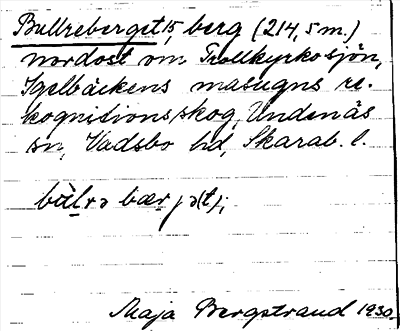 Bullreberget 15, berg (214,5 m.)
nordost om Trollkyrkosjön,
Igelbäckens masugns re-
kognitionsskog, Undenäs
sn, Vadsbo hd, Skarab. l.
Maja Bergstrand 1930.